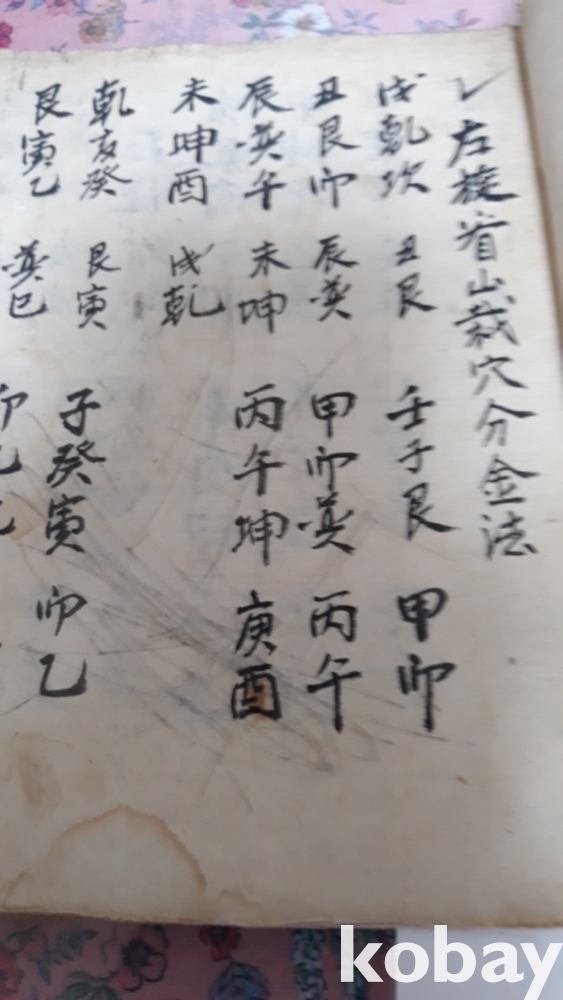 左旋看山裁穴分金法
戌乾坎 丑艮 壬子艮 甲卯
丑艮卯 辰巽 甲卯巽 丙午
辰巽午 未坤 丙午坤 庚酉
未坤酉 戌乾
乾亥癸 艮寅 子癸寅 卯乙
艮寅乙 巽巳
kobay